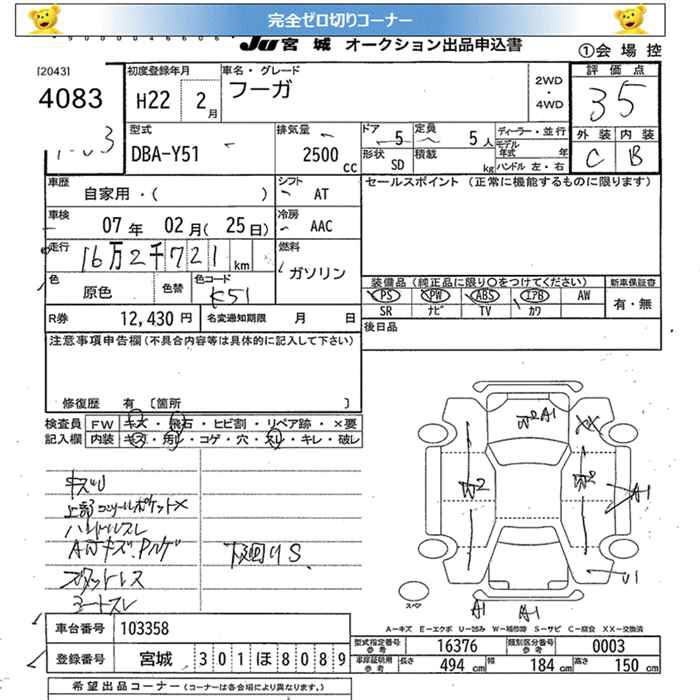 完全ゼロ切りコーナー
JU宮城 オークション出品申込書
①会場控
[2043]
4083
初度登録年月
H22 2月
車名・グレード
フーガ
2WD・4WD
評価点
35
外装 内装
C B
型式
DBA-Y51
排気量
2500 CC
ドア 5
形状 SD
定員 5人
積載 kg
ディーラー・並行
モデル年式 年
ハンドル 左・右
車歴
自家用・( )
シフト
AT
セールスポイント (正常に機能するものに限ります)
車検
07年 02月(25日)
冷房
AAC
走行
16万2千721 km
燃料
ガソリン
色
原色
色替
色コード
K51
装備品(純正品に限り○をつけてください)
新車保証書
PS PW ABS エアB AW
SR ナビ TV カワ
有・無
R券 12,430円
名変通知期限 月 日
後日品
注意事項申告欄(不具合内容等は具体的に記入して下さい)
修復歴 有 〔箇所 〕
検査員記入欄
FW キズ・飛石・ヒビ割・リペア跡・×要
内装 キズ・汚レ・コゲ・穴・スレ・キレ・破レ
キズU
ハンドルスレ
シートスレ
下廻りS
W2 A1
XX
W2
W2
A1
U1
A1
A1
スペア
A-キズ E-エクボ U-凹み W-補修跡 S-サビ C-腐食 XX-交換済
車台番号 103358
登録番号 宮城 301ほ8089
型式指定番号 参考 16376
類別区分番号 参考 0003
車庫証明用 参考 長さ 494cm 幅 184cm 高さ 150cm
希望出品コーナー (コーナーは各会場により異なります。)